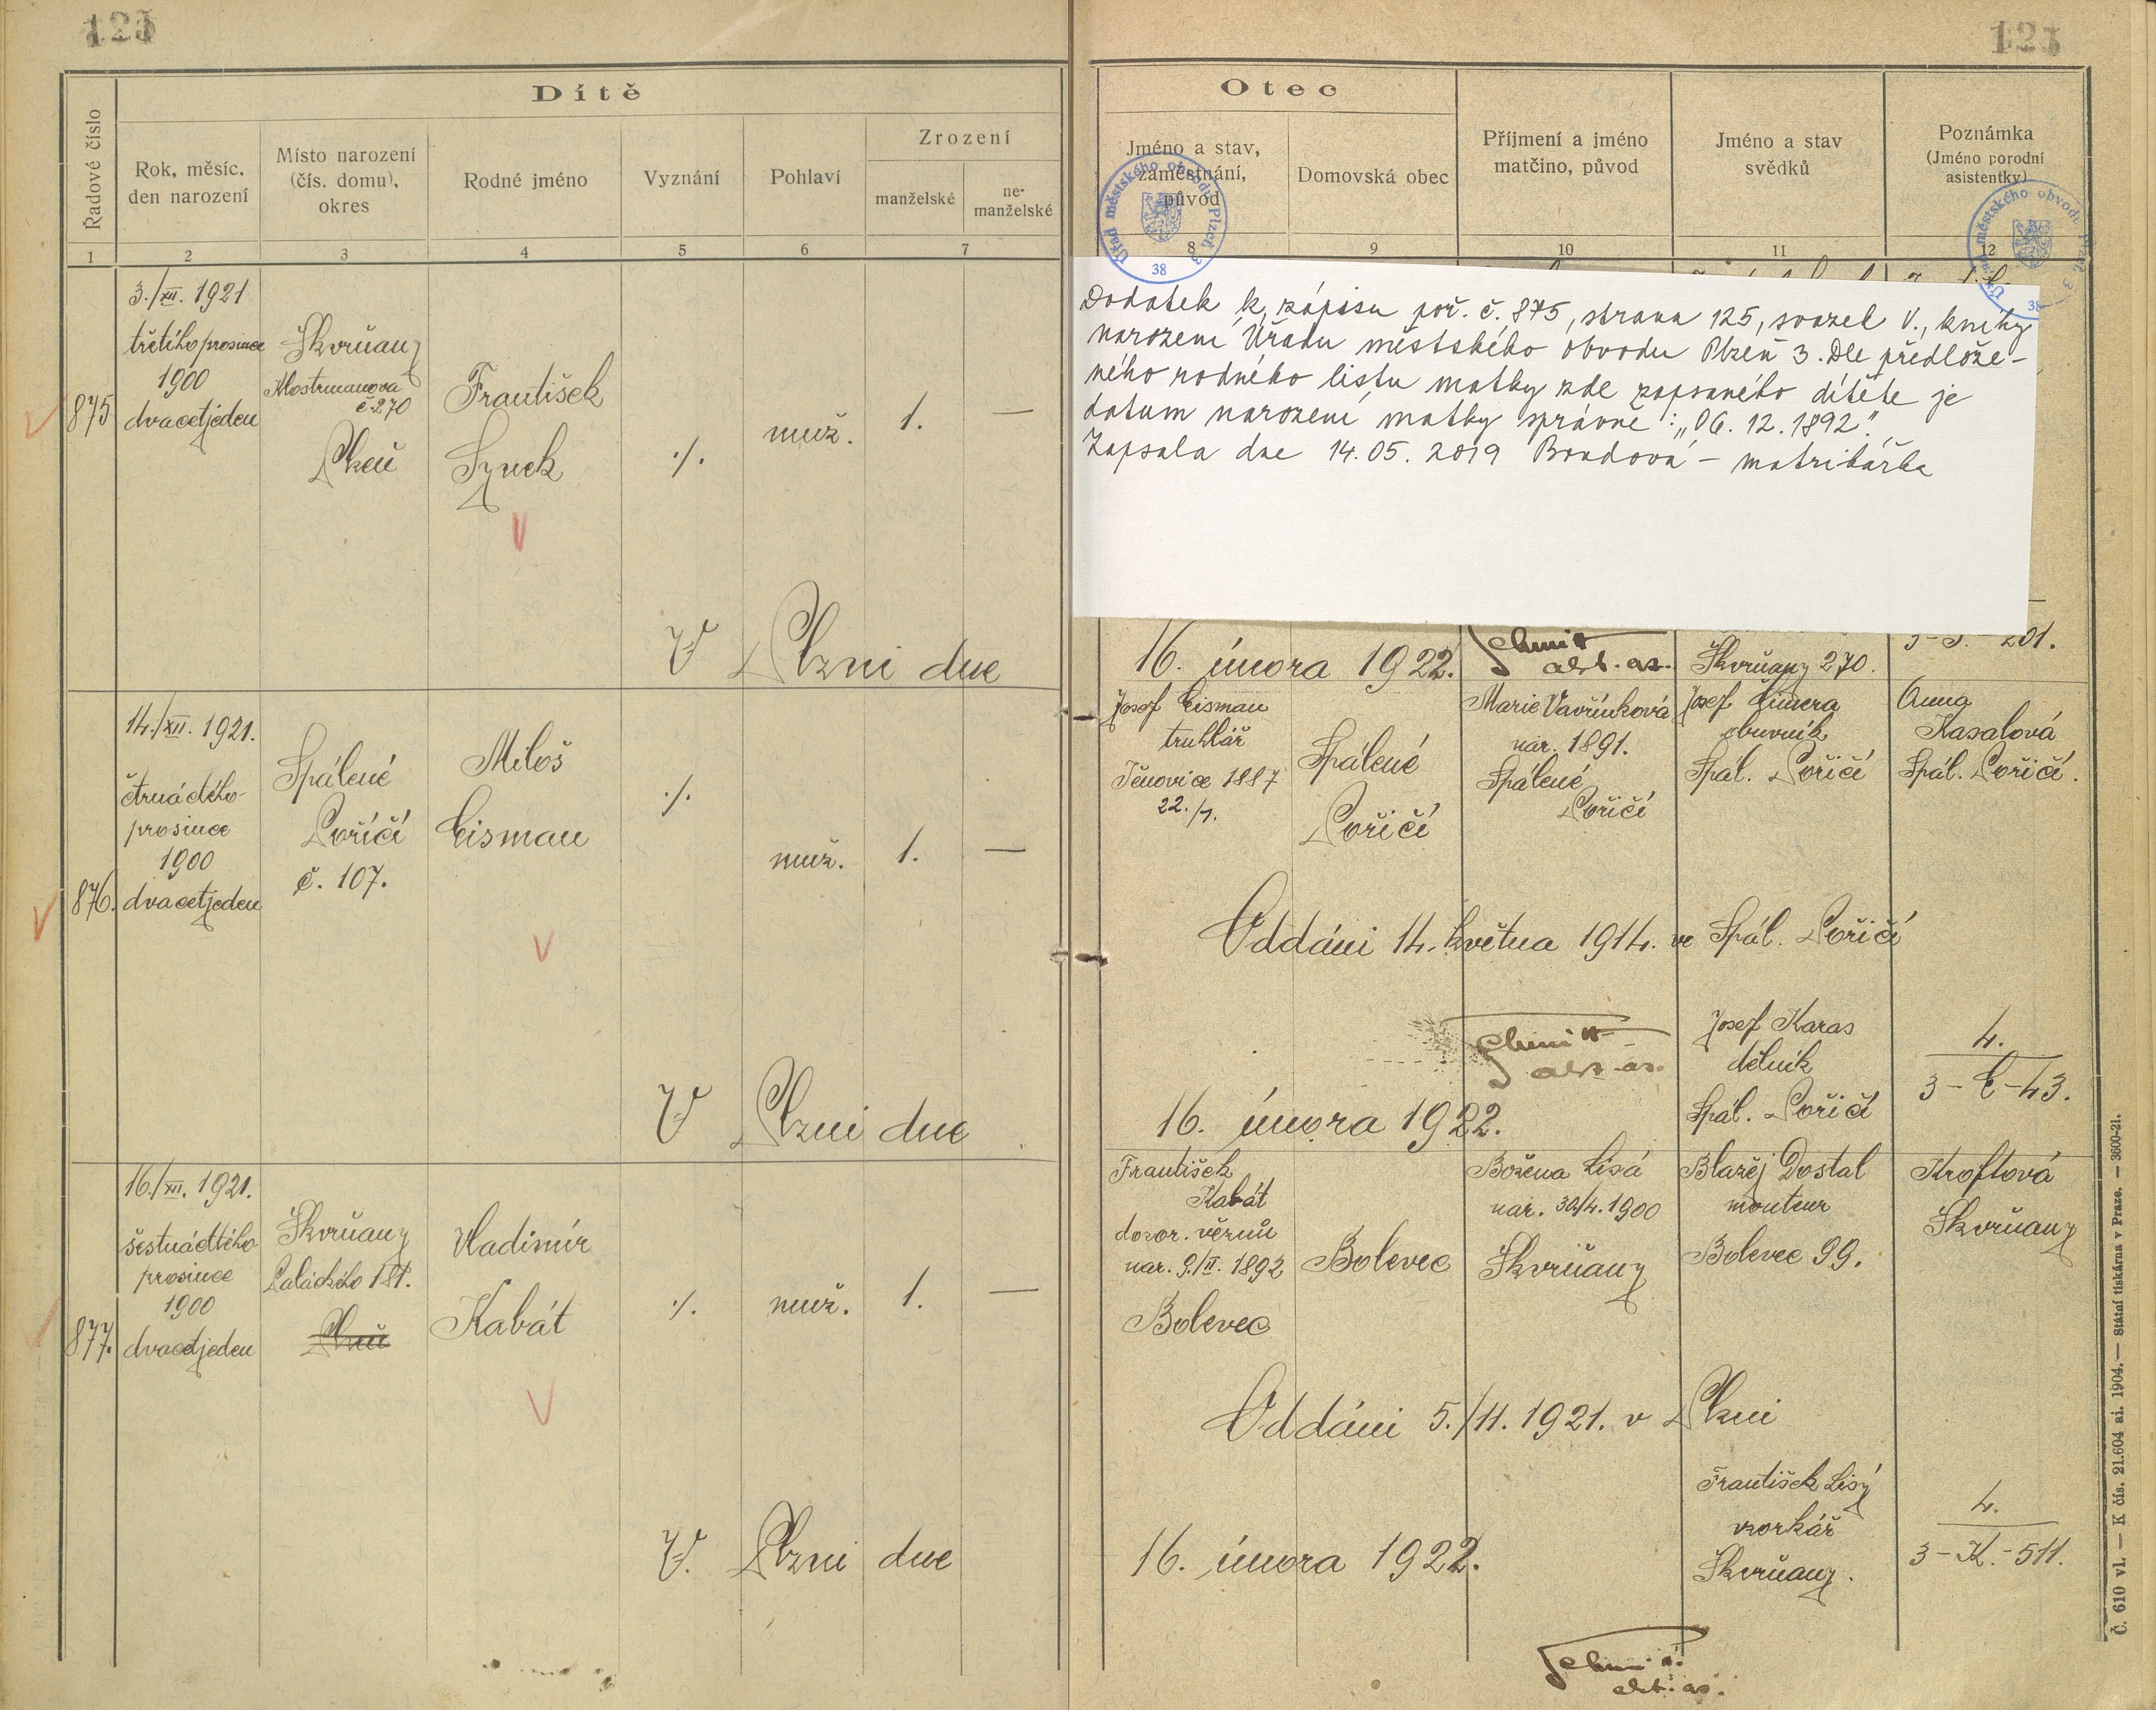 125
125
Dítě
Řadové číslo
Rok, měsíc,
den narození
Místo narození
(čís. domu),
okres
Rodné jméno
Vyznání
Pohlaví
Zrození
manželské
ne-
manželské
1
2
3
4
5
6
7
Otec
Jméno a stav,
zaměstnání,
původ
Domovská obec
Příjmení a jméno
matčino, původ
Jméno a stav
svědků
Poznámka
(Jméno porodní
asistentky)
8
9
10
11
12
Úřad městského obvodu Plzeň 3
38
Úřad městského obvodu Plzeň 3
38
875
3./XII. 1921
třetího prosince
1900
dvacetjeden
Škvrňany
Klostrmanova
č 270
Plzeň
František
Synek
·/.
muž.
1.
—
V Plzni dne
Dodatek k zápisu poř. č. 875, strana 125, svazek V., knihy
narození Úřadu městského obvodu Plzeň 3. Dle předlože-
ného rodného listu matky zde zapsaného dítěte je
datum narození matky správně: „06. 12. 1892".
Zapsala dne 14. 05. 2019 Bendová - matrikářka
16. února 1922.
Schmitt
akt. as.
Škvrňany 270.
201.
876.
14./XII. 1921.
čtrnáctého
prosince
1900
dvacetjeden
Spálené
Poříčí
č. 107.
Miloš
Eisman
·/.
muž.
1.
—
Josef Eisman
truhlář
Těnovice 1887
22./1.
Spálené
Poříčí
Marie Vavřínková
nar. 1891.
Spálené
Poříčí
Josef
obuvník
Spál. Poříčí
Anna
Kasalová
Spál. Poříčí.
Oddáni 14. května 1914. ve Spál. Poříčí
Schmitt
akt. as.
Josef Karas
dělník
Spál. Poříčí
4.
3 - E - 43.
V Plzni dne
16. února 1922.
877.
16./XII. 1921.
šestnáctého
prosince
1900
dvacetjeden
Škvrňany
Palackého 181.
Plzeň
Vladimír
Kabát
·/.
muž.
1.
—
František
Kabát
dozor. vězňů
nar. 9./II. 1892
Bolevec
Bolevec
Božena Lísá
nar. 30/4. 1900
Škvrňany
Blažej Dostal
monteur
Bolevec 99.
Kroftová
Škvrňany
Oddáni 5./11. 1921. v Plzni
František Lisý
vzorkář
Škvrňany.
4.
3 - K. - 511.
V. Plzni dne
16. února 1922.
Schmitt
akt. as.
Č. 610 vl. — K čís. 21.604 ai. 1904. — Státní tiskárna v Praze. — 3600-21.